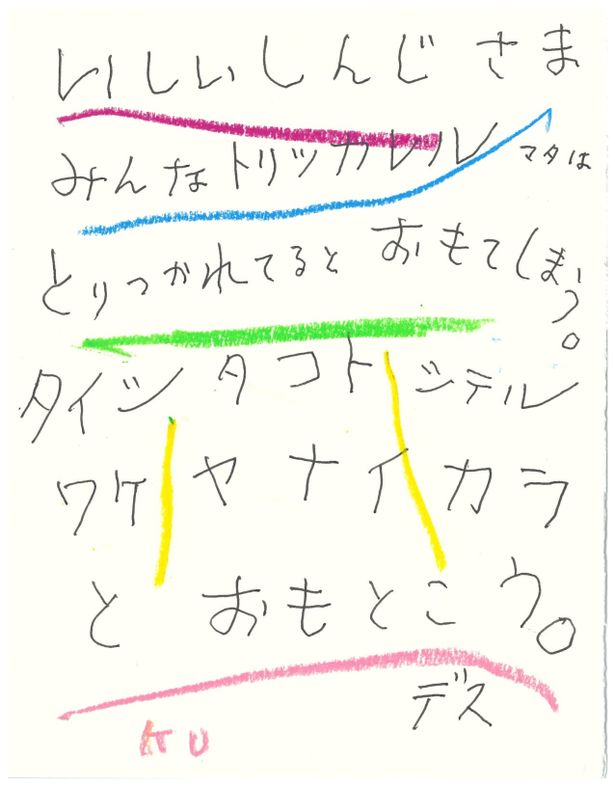 いしいしんじさま
みんなトリツカレル マタは
とりつかれてると おもてしまう。
タイシタコトシテル
ワケヤナイカラ
と おもとこう。
デス